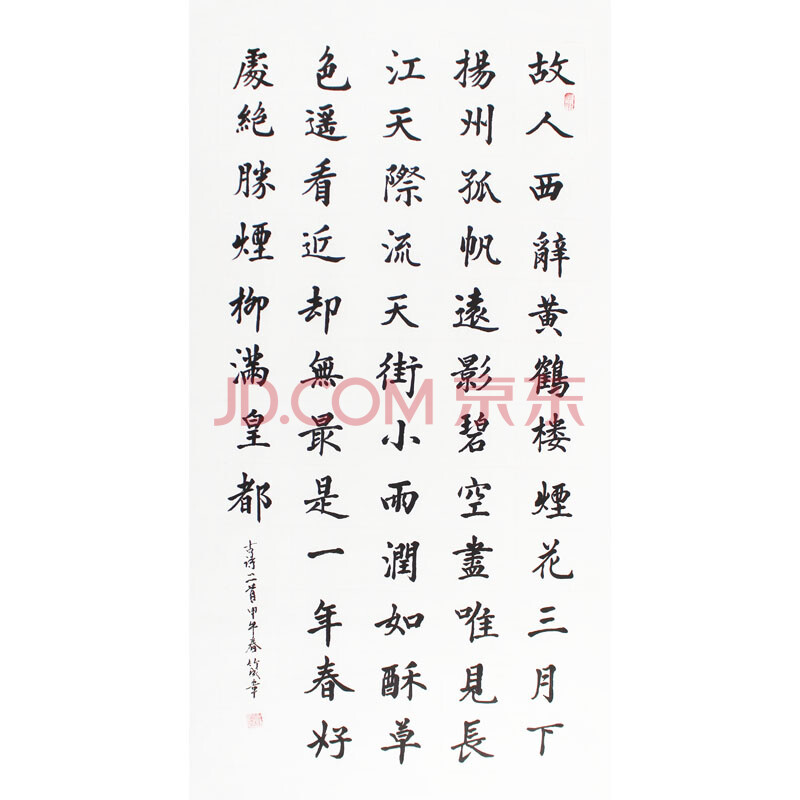 故人西辭黄鶴楼煙花三月下
揚州孤帆遠影碧空盡唯見長
江天際流天街小雨潤如酥草
色遥看近却無最是一年春好
處絶勝煙柳滿皇都
古诗二首甲午春
JD.COM 京东